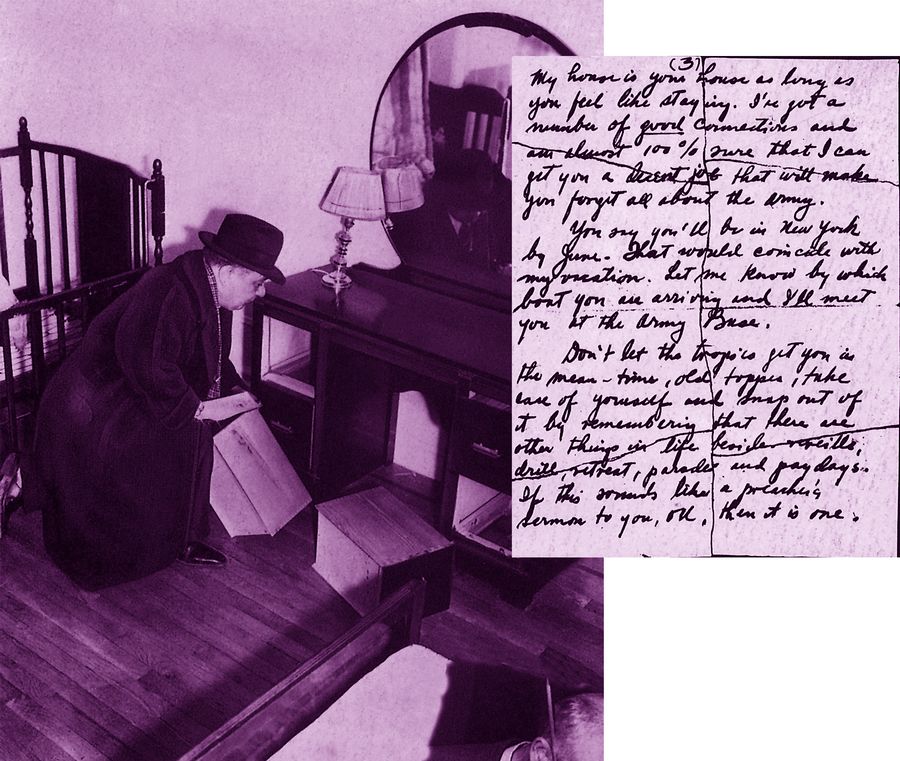 (3)
My house is your house as long as
you feel like staying. I've got a
number of good connections and
am almost 100% sure that I can
get you a decent job that will make
you forget all about the army.
You say you'll be in New York
by June. That would coincide with
my vacation. Let me know by which
boat you are arriving and I'll meet
you at the Army Base.
Don't let the tropics get you in
the mean-time, old topper, take
care of yourself and snap out of
it by remembering that there are
other things in life beside reveille,
drill, retreat, parades and paydays.
If this sounds like a preacher's
sermon to you, OK, then it is one.